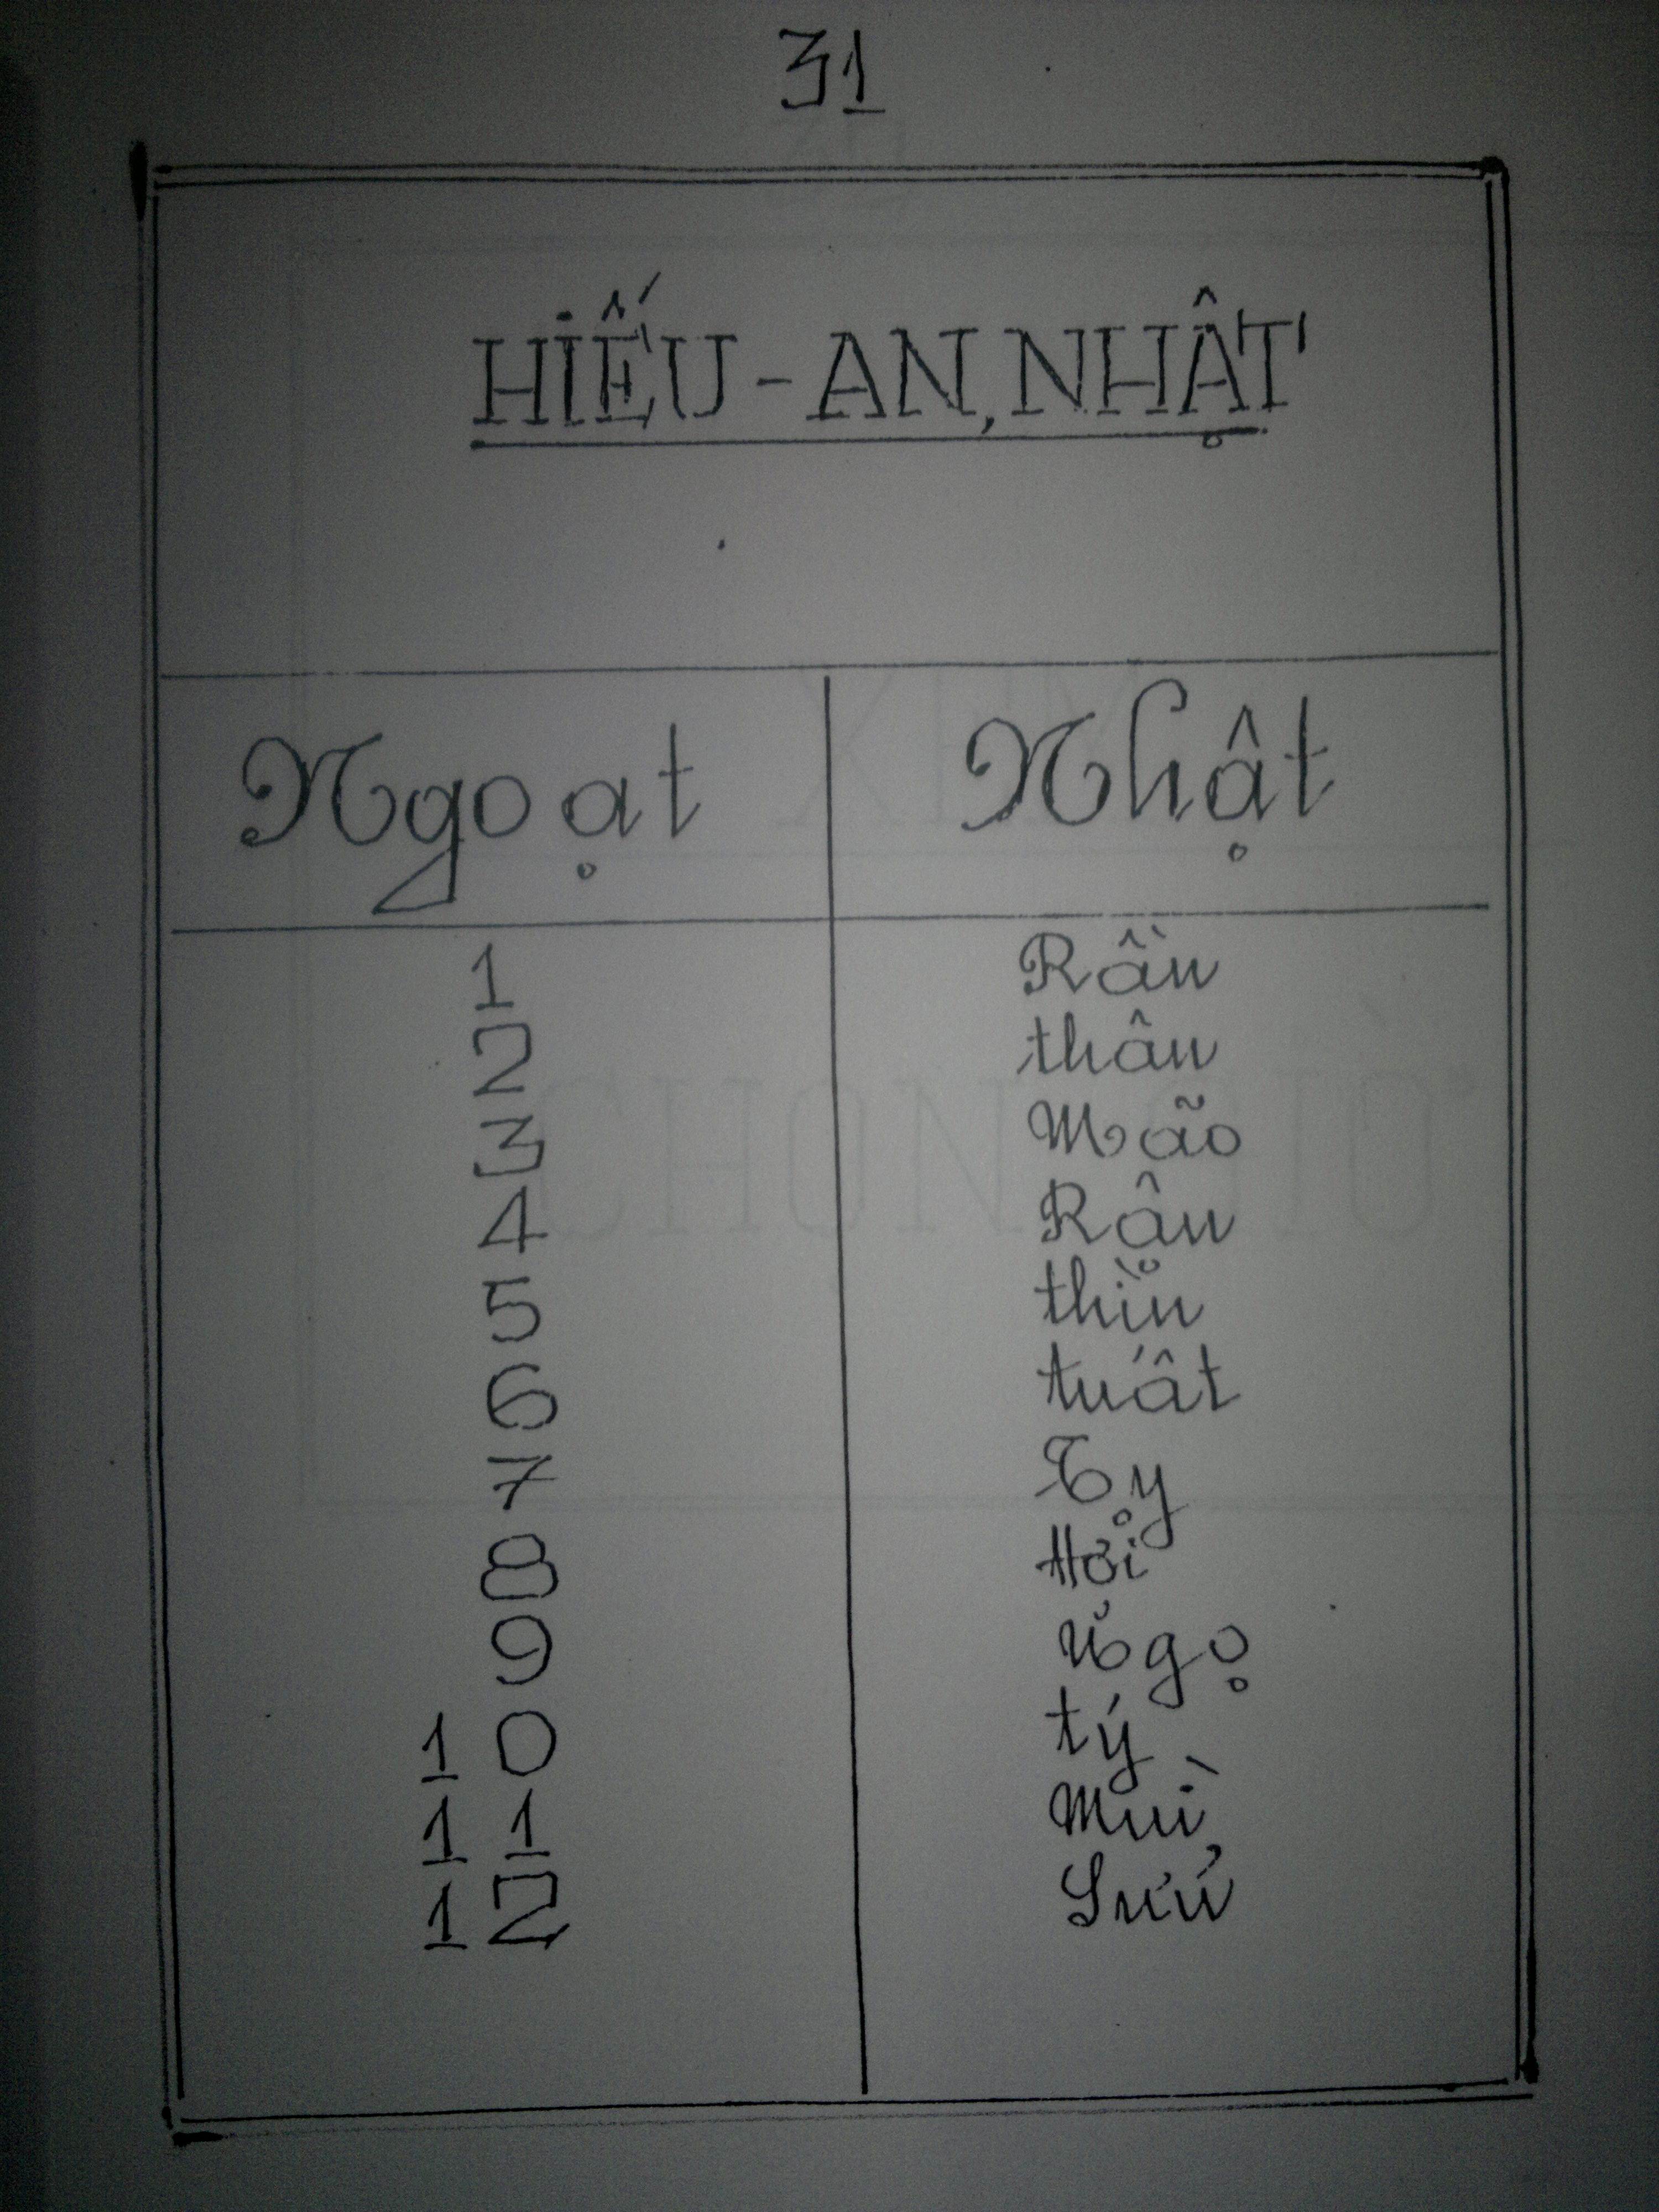 31
HIẾU - AN, NHẬT
Ngoạt Nhật
1 Rần
2 thân
3 Mão
4 Rậu
5 thìn
6 tuất
7 Tỵ
8 Hởi
9 Ngọ
10 tý
11 Mùi
12 Sưủ